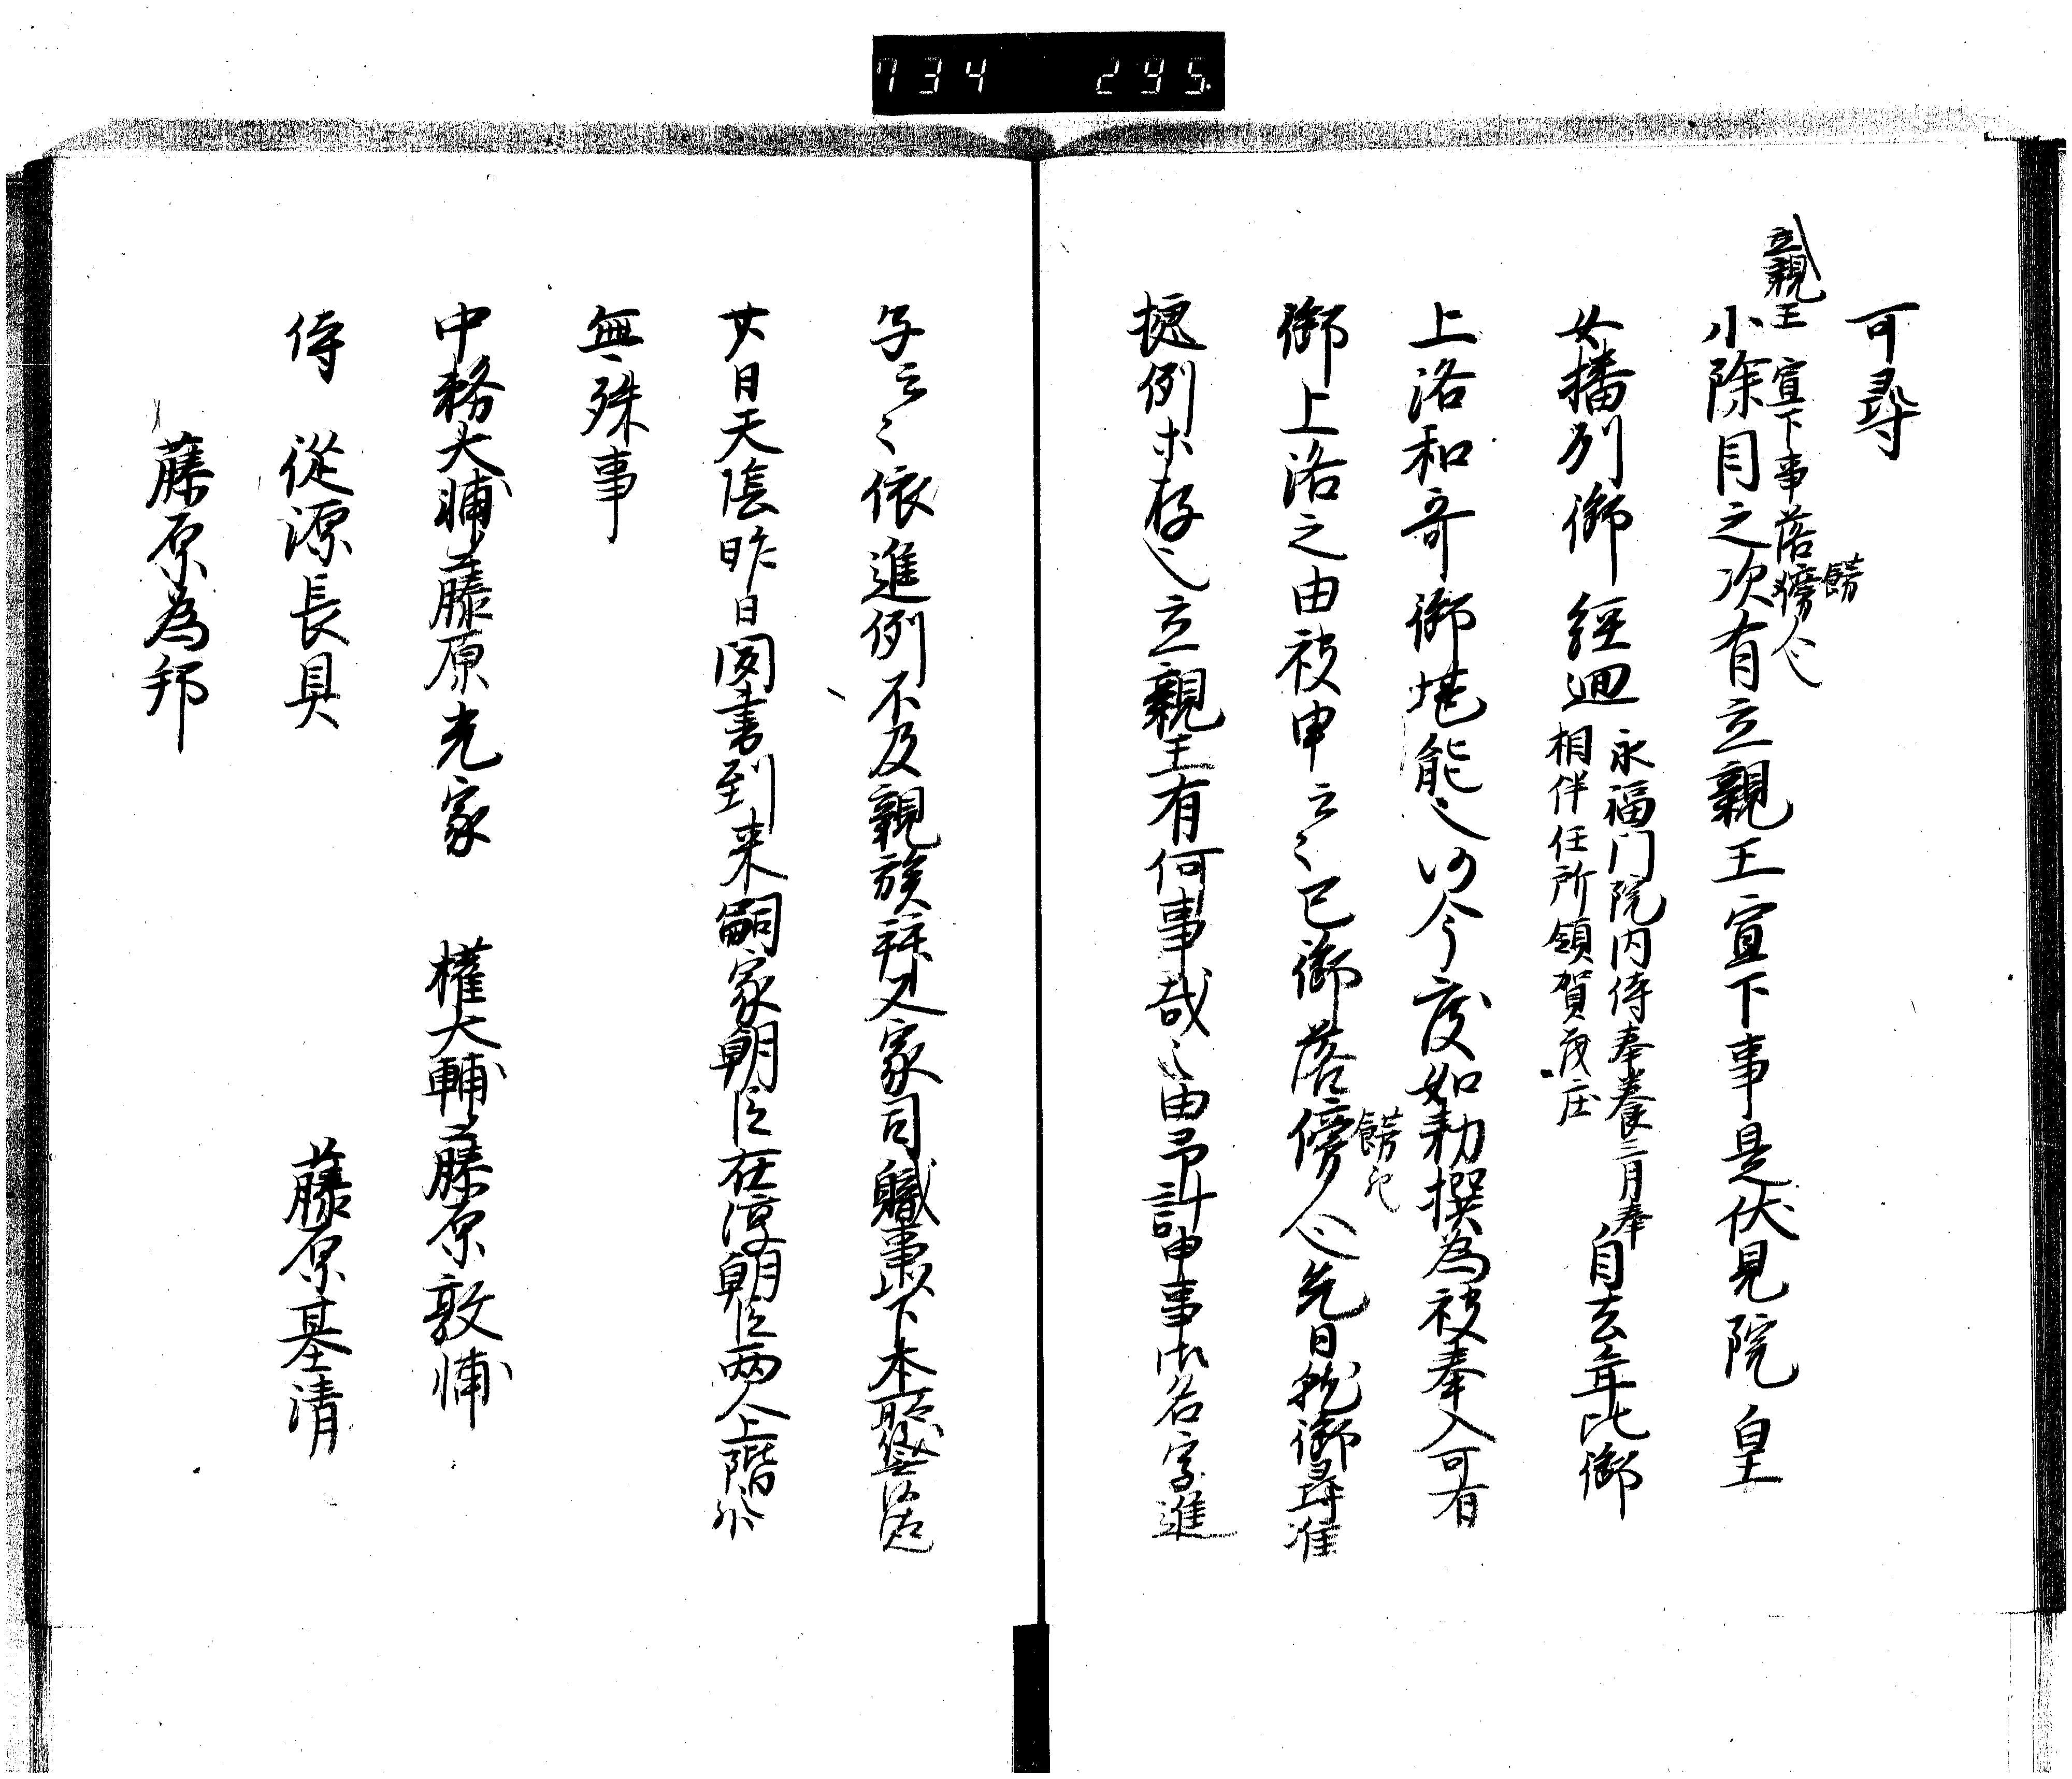 734 295.
可尋
立親王宣下事落㝑人也
餝
小除目之次有立親王宣下事是伏見院皇
女播州御経廻
永福门院内侍奉養三月奉
相伴任所領賀茂庄
自去年比御
上洛和哥御堪能也仍今度如勅撰為被奉入可有
御上洛之由被申云々已御落傍人也先日就御尋准
餝
拠例少存之立親王有何事哉之由予計申事御名字進
子云々依進例不及親族拝又家司職事以下本
廿日天陰昨日聞書到来嗣家朝臣在淳朝臣两人上階外
無殊事
中務大輔藤原光家 權大輔藤原敦
侍従源長具 藤原基清
藤原為邦